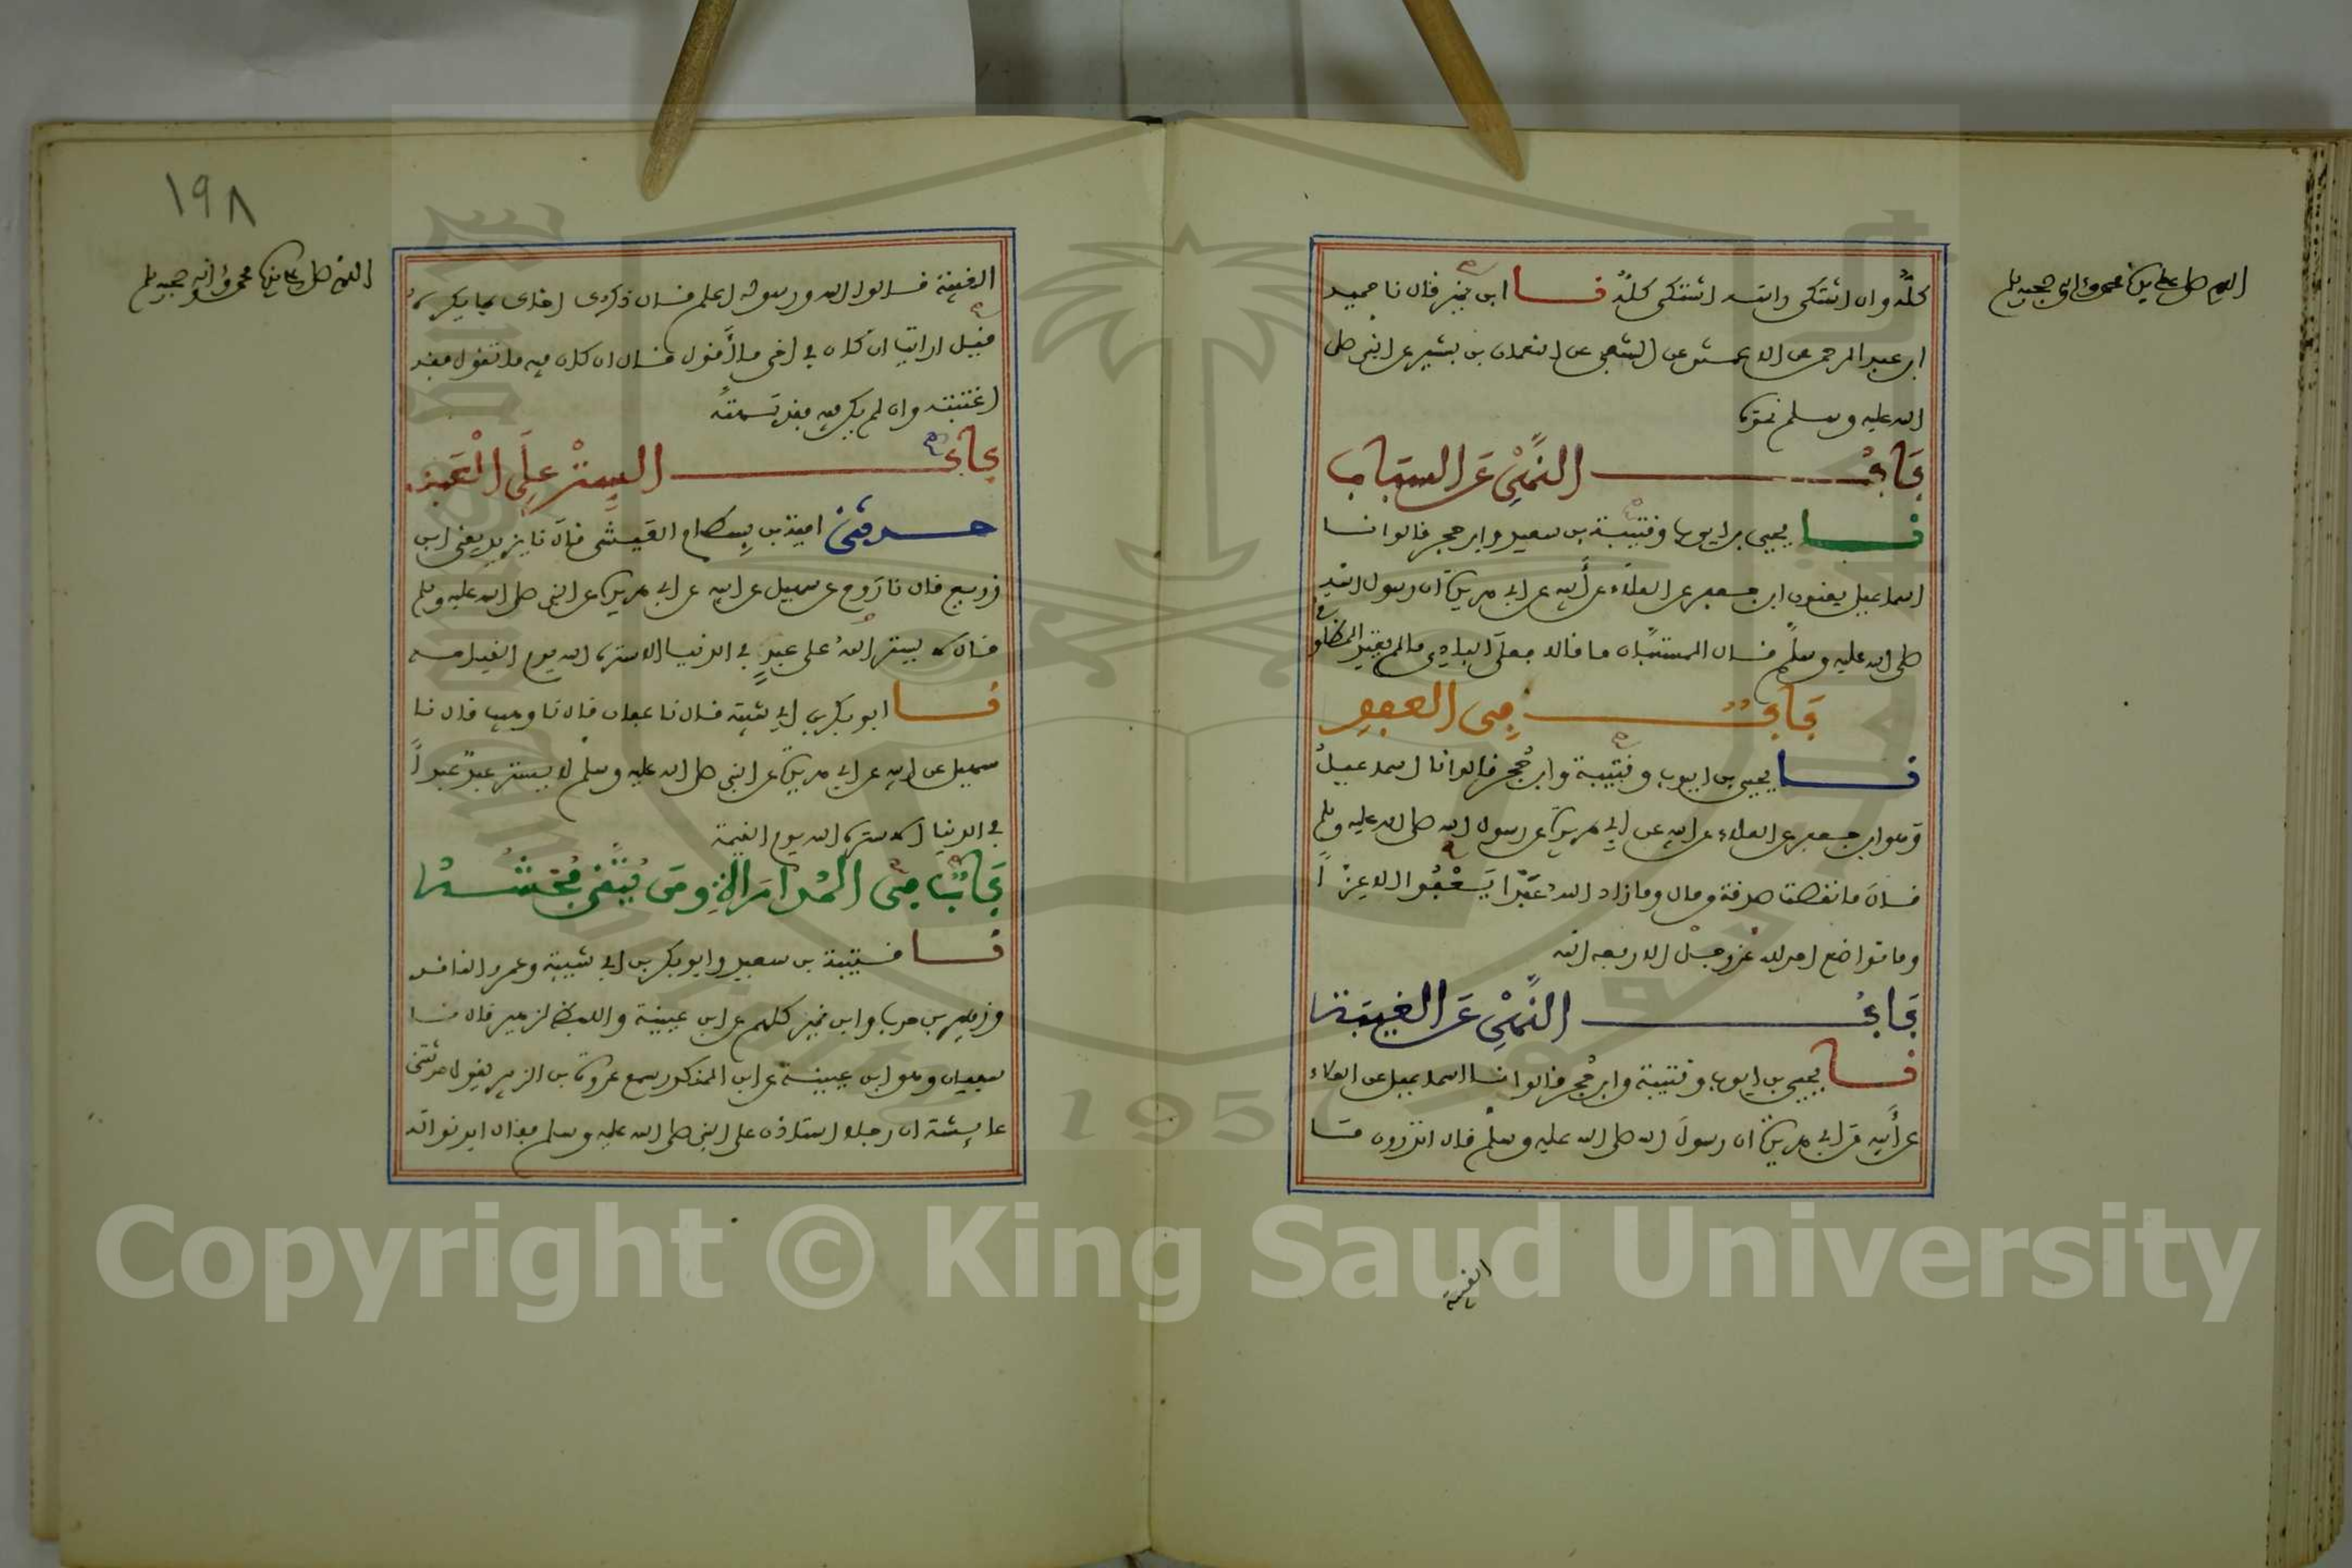 اللهم صل على سيدنا محمد وعلى اله وصحبه وسلم
كله وان اشتكى راسه اشتكى كله نا ابن نمير قال نا حميد
ابن عبد الرحمن عن الاعمش عن الشعبي عن النعمان بن بشير عن النبي صلى
الله عليه وسلم نحوه
باب النهي عن السباب
نا يحيى بن ايوب وقتيبة بن سعيد وابن حجر قالوا نا
اسماعيل يعنون ابن جعفر عن العلاء عن أبيه عن ابي هريرة ان رسول الله
صلى الله عليه وسلم قال المستبان ما قالا فعلى البادي ما لم يعتد المظلوم
باب في العفو
نا يحيى بن ايوب وقتيبة وابن حجر قالوا نا اسماعيل
وهو ابن جعفر عن العلاء عن ابيه عن ابي هريرة عن رسول الله صلى الله عليه وسلم
قال ما نقصت صدقة من مال وما زاد الله عبدا بعفو الا عزا
وما تواضع احد لله عز وجل الا رفعه الله
باب النهي عن الغيبة
نا يحيى بن ايوب وقتيبة وابن حجر قالوا نا اسماعيل عن العلاء
عن أبيه عن ابي هريرة ان رسول الله صلى الله عليه وسلم قال اتدرون ما
الغيبة
١٩٨
اللهم صل على سيدنا محمد وعلى اله وصحبه وسلم
الغيبة قالوا الله ورسوله اعلم قال ذكرك اخاك بما يكره
قيل ارايت ان كان في اخي ما أقول قال ان كان فيه ما تقول فقد
اغتبته وان لم يكن فيه فقد بهته
باب الستر على العبد
حدثني امية بن بسطام العيشي قال نا يزيد يعني ابن
زريع قال نا روح عن سهيل عن ابيه عن ابي هريرة عن النبي صلى الله عليه وسلم
قال لا يستر الله على عبد في الدنيا الا ستره الله يوم القيامة
نا ابو بكر بن ابي شيبة قال نا عفان قال نا وهيب قال نا
سهيل عن ابيه عن ابي هريرة عن النبي صلى الله عليه وسلم لا يستر عبد عبدا
في الدنيا الا ستره الله يوم القيمة
باب في المداراة ومن يتقى فحشه
نا قتيبة بن سعيد وابو بكر بن ابي شيبة وعمرو الناقد
وزهير بن حرب وابن نمير كلهم عن ابن عيينة واللفظ لزهير قال نا
سفيان وهو ابن عيينة عن ابن المنكدر سمع عروة بن الزبير يقول حدثتني
عايشة ان رجلا استاذن على النبي صلى الله عليه وسلم فقال ايذنوا له
1957
Copyright © King Saud University